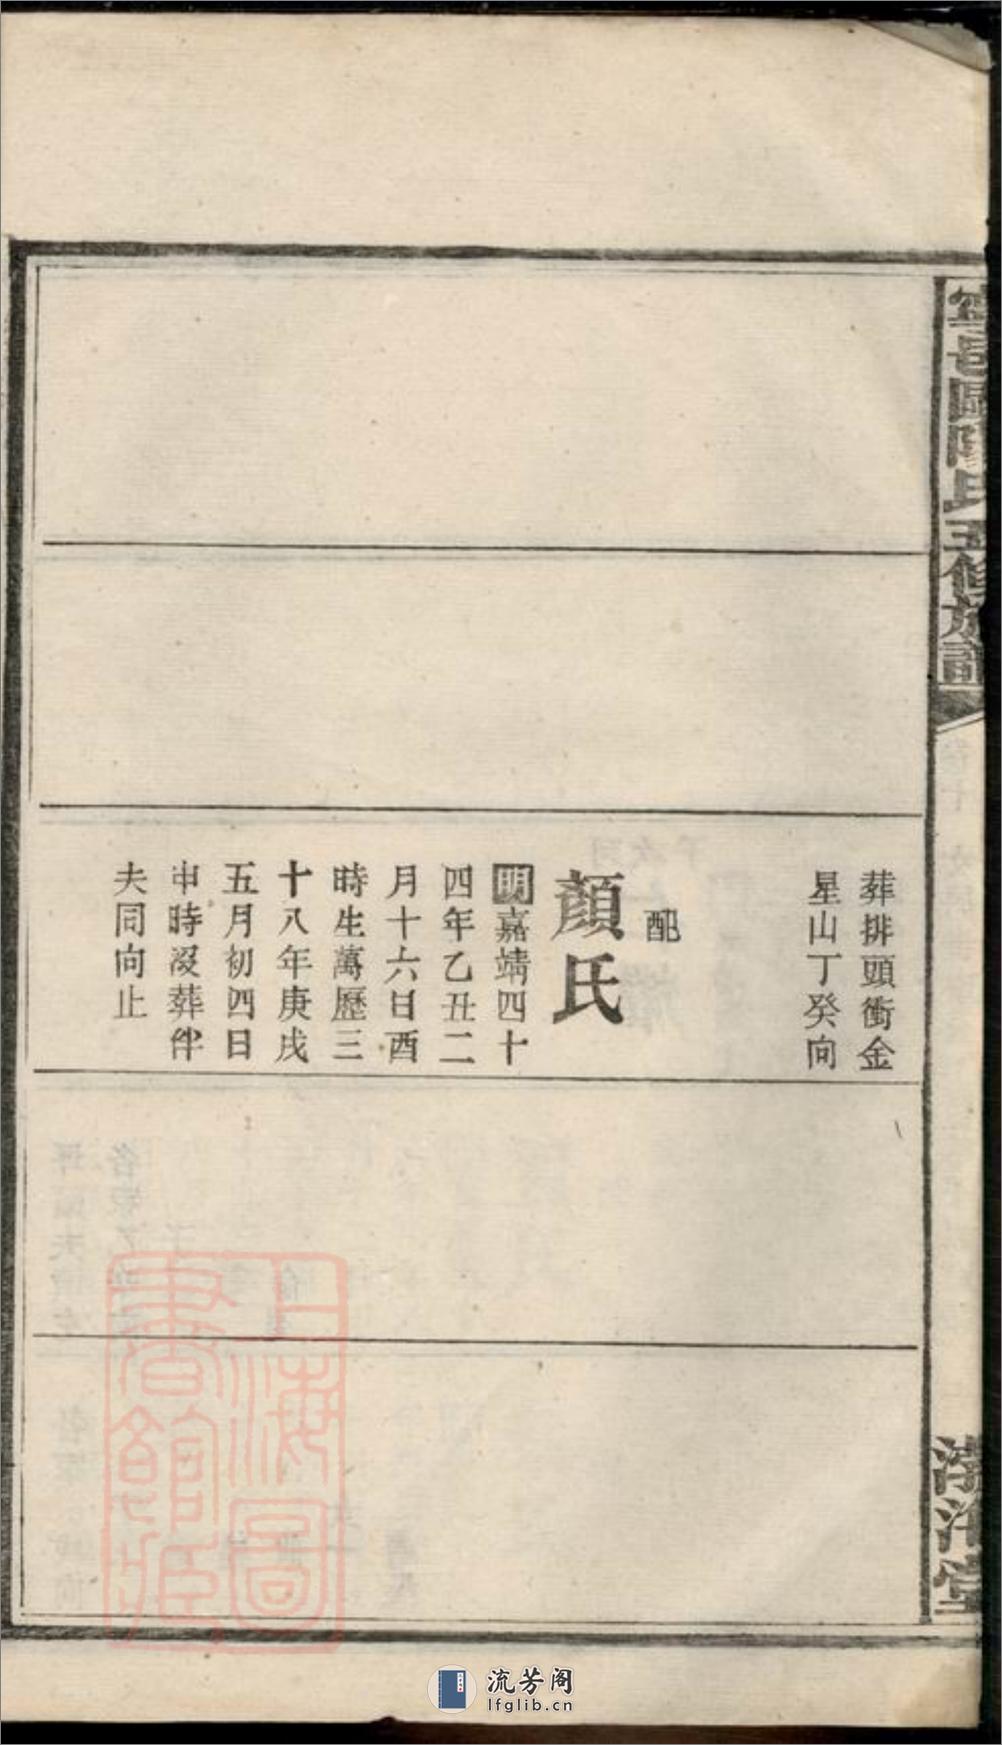 寧邑歐陽氏五修族譜
葬排頭衝金
星山丁癸向
配
顏氏
明嘉靖四十
四年乙丑二
月十六日酉
時生萬歷三
十八年庚戌
五月初四日
申時沒葬伴
夫同向止
上海圖
書館藏
流芳阁
lfglib.cn